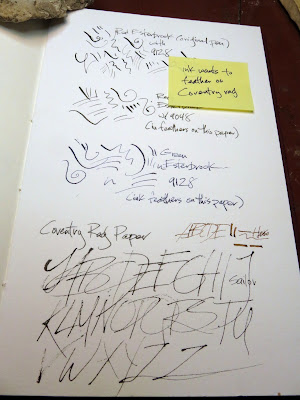 Red Esterbrook (original pen)
with
9128
ink wants to
feather on
Coventry rag
w/ 9048
(ink feathers on this paper)
Green
w Esterbrook
9128
(ink feathers on this paper)
Coventry Rag Paper
ABCDEFGHIJ
KLMNOPQRSTU
VWXYZZ